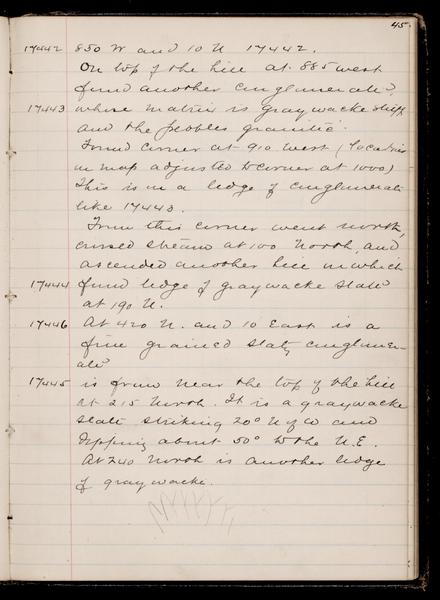 45.
17442 850 W and 10 N 17442.
On top of the hill at 885 west
find another conglomerate,
17443 whose matrix is graywacke stuff
and the pebbles granitic.
Found corner at 910 west (locations
on map adjusted to corner at 1000)
This is on a ledge of conglomerate
like 17443.
From this corner went north,
crossed stream at 100 North, and
ascended another hill on which
17444 find ledge of graywacke slate
at 190 N.
17446 At 420 N. and 10 East is a
fine grained slaty conglomer-
ate
17445 is from near the top of the hill
at 215 North. It is a graywacke
slate striking 20° N of W and
dipping about 50° to the N.E.
At 240 North is another ledge
of graywacke.